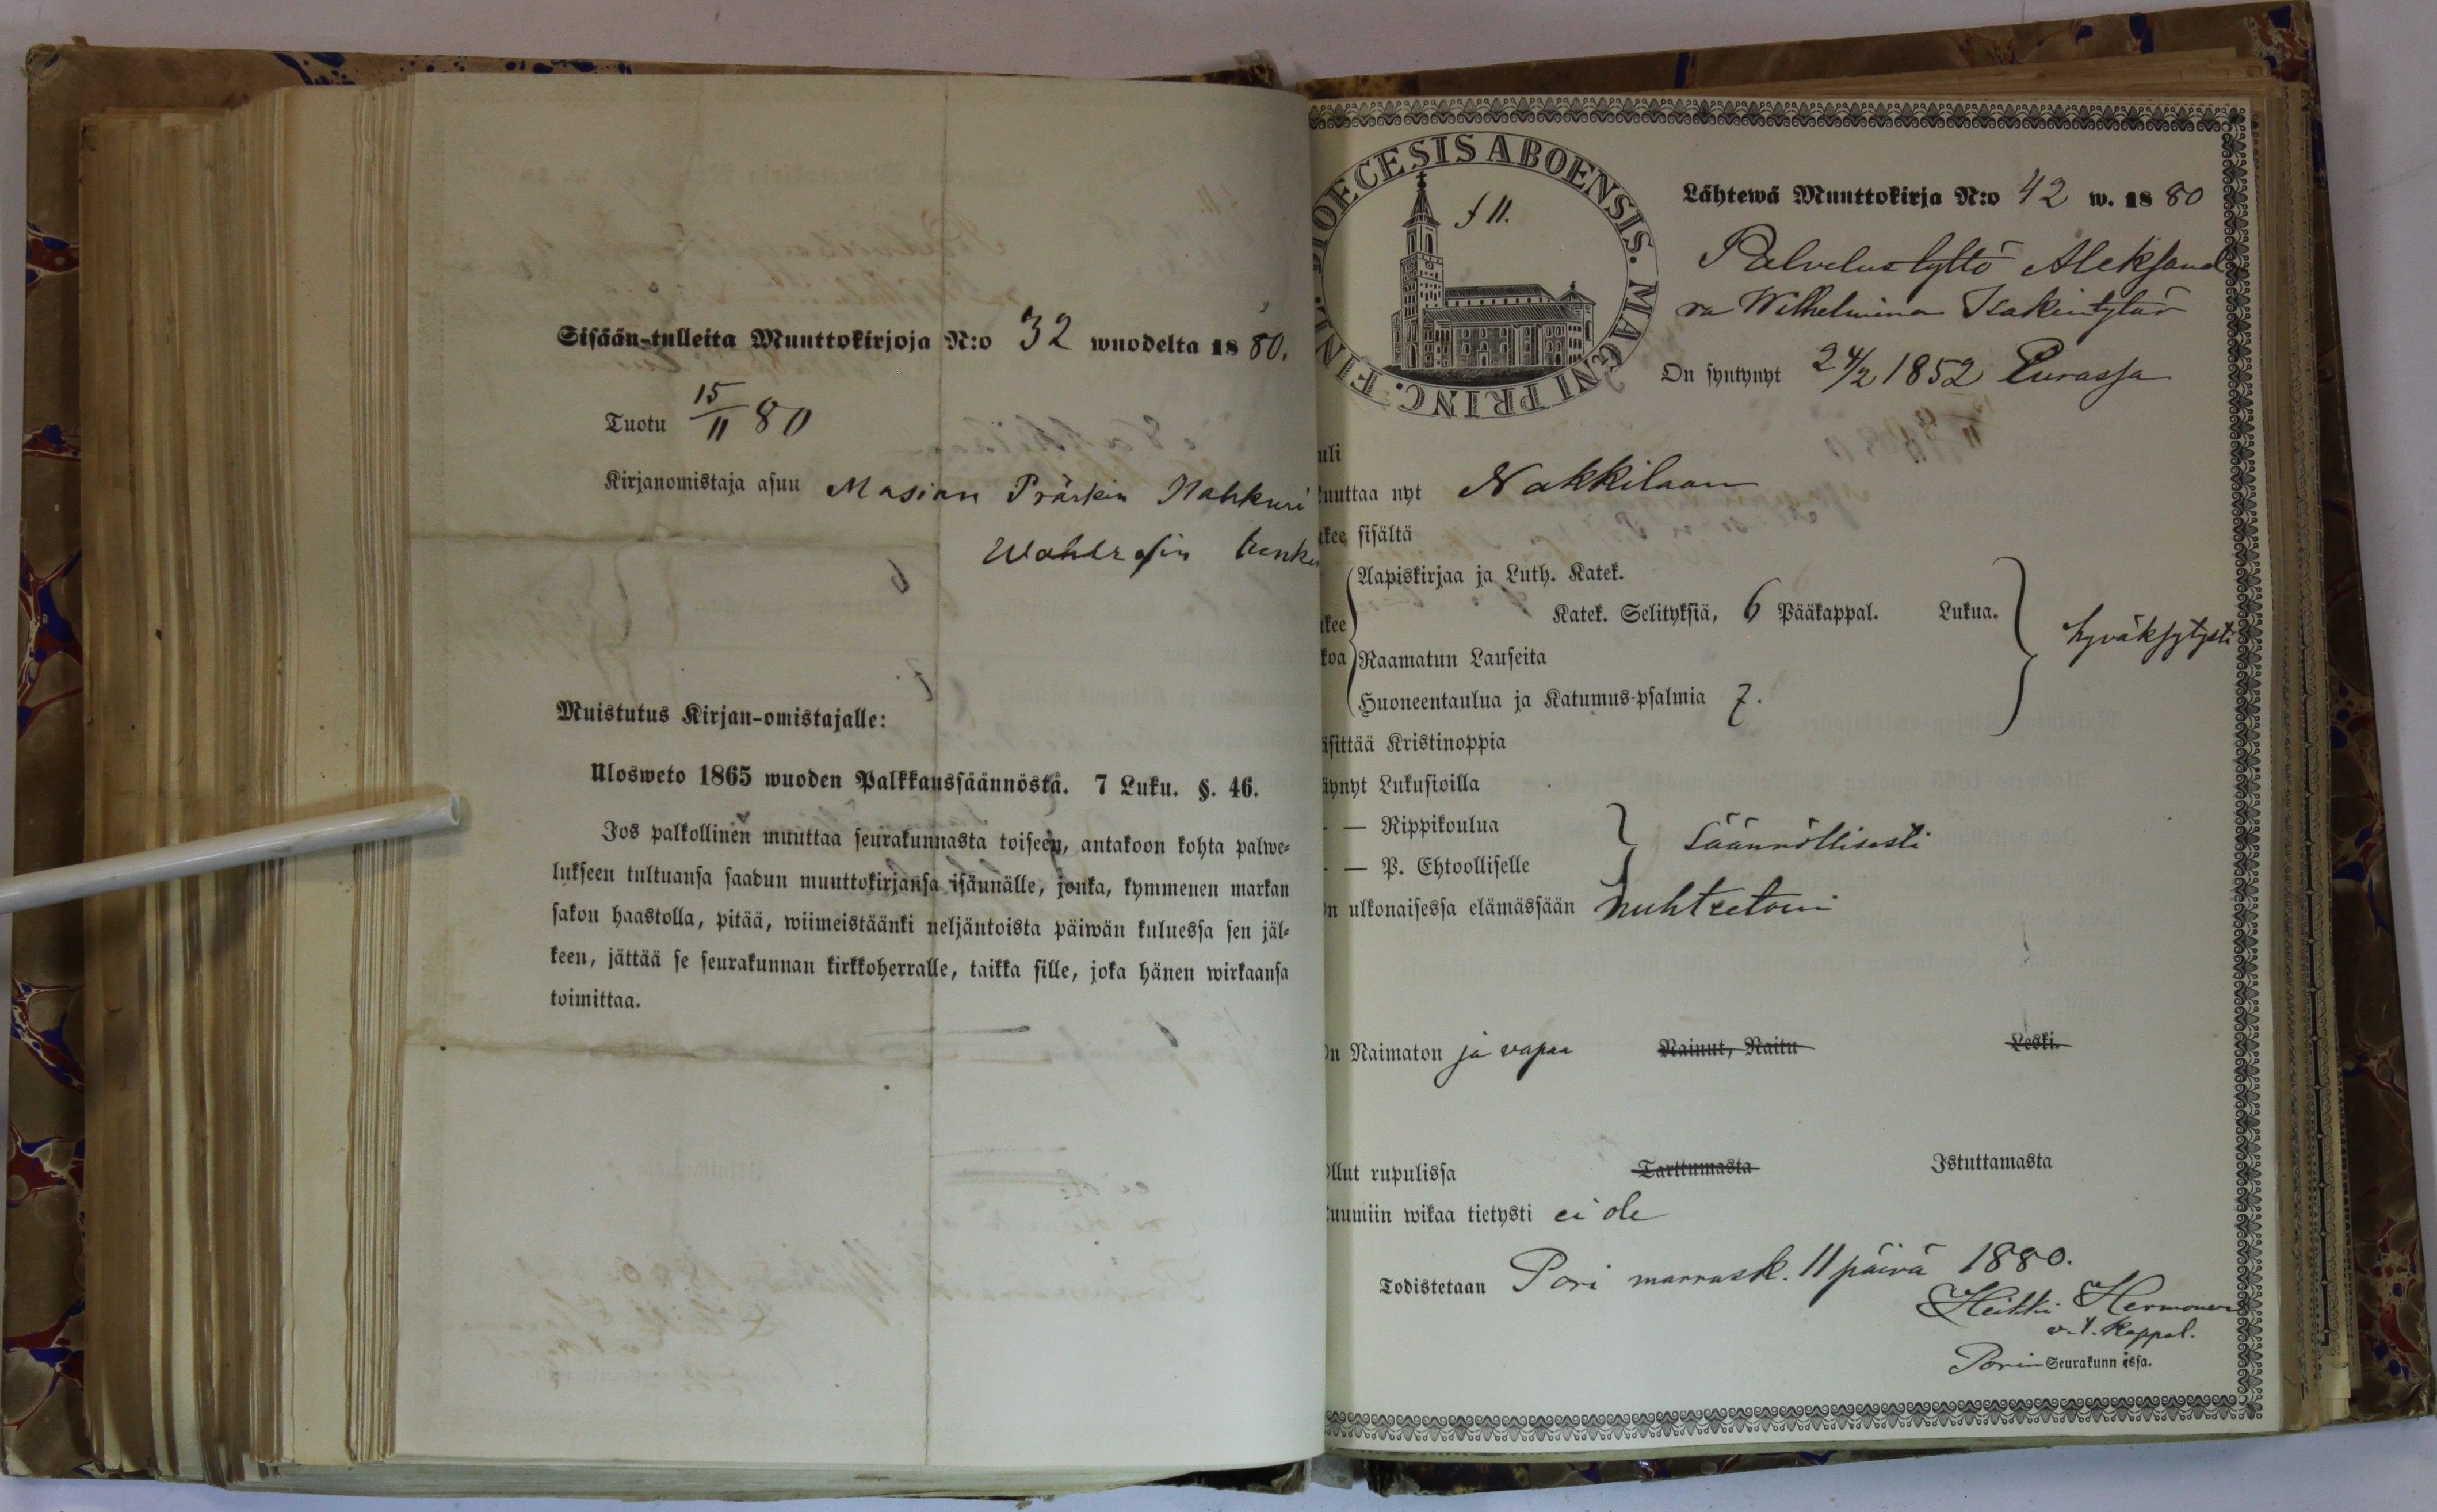 Sisään-tulleita Muuttokirjoja N:o 32 wuodelta 1880.
Tuotu 15/11 80
Kirjanomistaja asuu Masian Prärkin Nahkuri
Muistutus Kirjan-omistajalle:
Ulosweto 1865 wuoden Palkkaussäännöstä. 7 Luku. §. 46.
Jos palkollinen muuttaa seurakunnasta toiseen, antakoon kohta palwe-
lukseen tultuansa saadun muuttokirjansa isännälle, jonka, kymmenen markan
sakon haastolla, pitää, wiimeistäänki neljäntoista päiwän kuluessa sen jäl-
keen, jättää se seurakunnan kirkkoherralle, taikka sille, joka hänen wirkaansa
toimittaa.
DIOECESIS ABOENSIS. MAGNI PRINC. FINL.
f 11.
Lähtewä Muuttokirja N:o 42 w. 1880
Palvelustyttö Aleksand
ra Wilhelmina Isakintytär
On syntynyt 24/2 1852 Eurassa
uli
uuttaa nyt Nakkilaan
kee sisältä
Aapiskirjaa ja Luth. Katek.
kee Katek. Selityksiä, 6 Pääkappal. Lukua. hyväksytysti
koa Raamatun Lauseita
Huoneentaulua ja Katumus-psalmia 7.
äsittää Kristinoppia
äynyt Lukusioilla
— Rippikoulua
— P. Ehtoolliselle
Säännöllisesti
n ulkonaisessa elämässään nuhteetoin
n Naimaton ja vapaa Nainut, Naitu Leski.
llut rupulissa Tarttumasta Istuttamasta
uumiin wikaa tietysti ei ole
Todistetaan Pori marrask. 11 päivä 1880.
Heikki Hermonen
v.t. Kappal.
Porin Seurakunnissa.